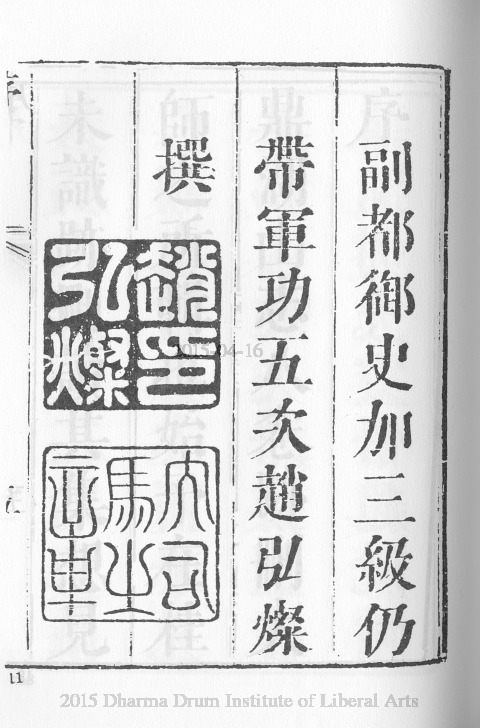 副都御史加三級仍
帶軍功五次趙弘燦
撰
趙印
弘燦
大司
馬之
章
序
11
2015-04-16
2015 Dharma Drum Institute of Liberal Arts